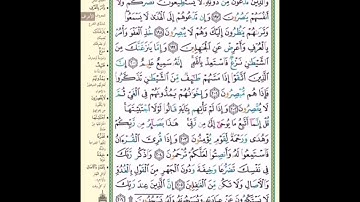 وَالَّذِينَ تَدْعُونَ مِن دُونِهِ لَا يَسْتَطِيعُونَ نَصْرَكُمْ وَلَا
أَنفُسَهُمْ يَنصُرُونَ ١٩٧ وَإِن تَدْعُوهُمْ إِلَى الْهُدَىٰ لَا يَسْمَعُوا
وَتَرَىٰهُمْ يَنظُرُونَ إِلَيْكَ وَهُمْ لَا يُبْصِرُونَ ١٩٨ خُذِ الْعَفْوَ وَأْمُرْ
بِالْعُرْفِ وَأَعْرِضْ عَنِ الْجَٰهِلِينَ ١٩٩ وَإِمَّا يَنزَغَنَّكَ مِنَ
الشَّيْطَٰنِ نَزْغٌ فَاسْتَعِذْ بِاللَّهِ إِنَّهُ سَمِيعٌ عَلِيمٌ ٢٠٠ إِنَّ
الَّذِينَ اتَّقَوْا إِذَا مَسَّهُمْ طَٰٓئِفٌ مِّنَ الشَّيْطَٰنِ تَذَكَّرُوا
فَإِذَا هُم مُّبْصِرُونَ ٢٠١ وَإِخْوَٰنُهُمْ يَمُدُّونَهُمْ فِي الْغَيِّ ثُمَّ لَا
يُقْصِرُونَ ٢٠٢ وَإِذَا لَمْ تَأْتِهِم بِـَٔايَةٍ قَالُوا لَوْلَا اجْتَبَيْتَهَا
قُلْ إِنَّمَا أَتَّبِعُ مَا يُوحَىٰ إِلَيَّ مِن رَّبِّي هَٰذَا بَصَائِرُ مِن رَّبِّكُمْ
وَهُدًى وَرَحْمَةٌ لِّقَوْمٍ يُؤْمِنُونَ ٢٠٣ وَإِذَا قُرِئَ الْقُرْءَانُ
فَاسْتَمِعُوا لَهُ وَأَنصِتُوا لَعَلَّكُمْ تُرْحَمُونَ ٢٠٤ وَاذْكُر رَّبَّكَ
فِي نَفْسِكَ تَضَرُّعًا وَخِيفَةً وَدُونَ الْجَهْرِ مِنَ الْقَوْلِ بِالْغُدُوِّ
وَالْءَاصَالِ وَلَا تَكُن مِّنَ الْغَٰفِلِينَ ٢٠٥ إِنَّ الَّذِينَ عِندَ رَبِّكَ
لَا يَسْتَكْبِرُونَ عَنْ عِبَادَتِهِ وَيُسَبِّحُونَهُ وَلَهُ يَسْجُدُونَ